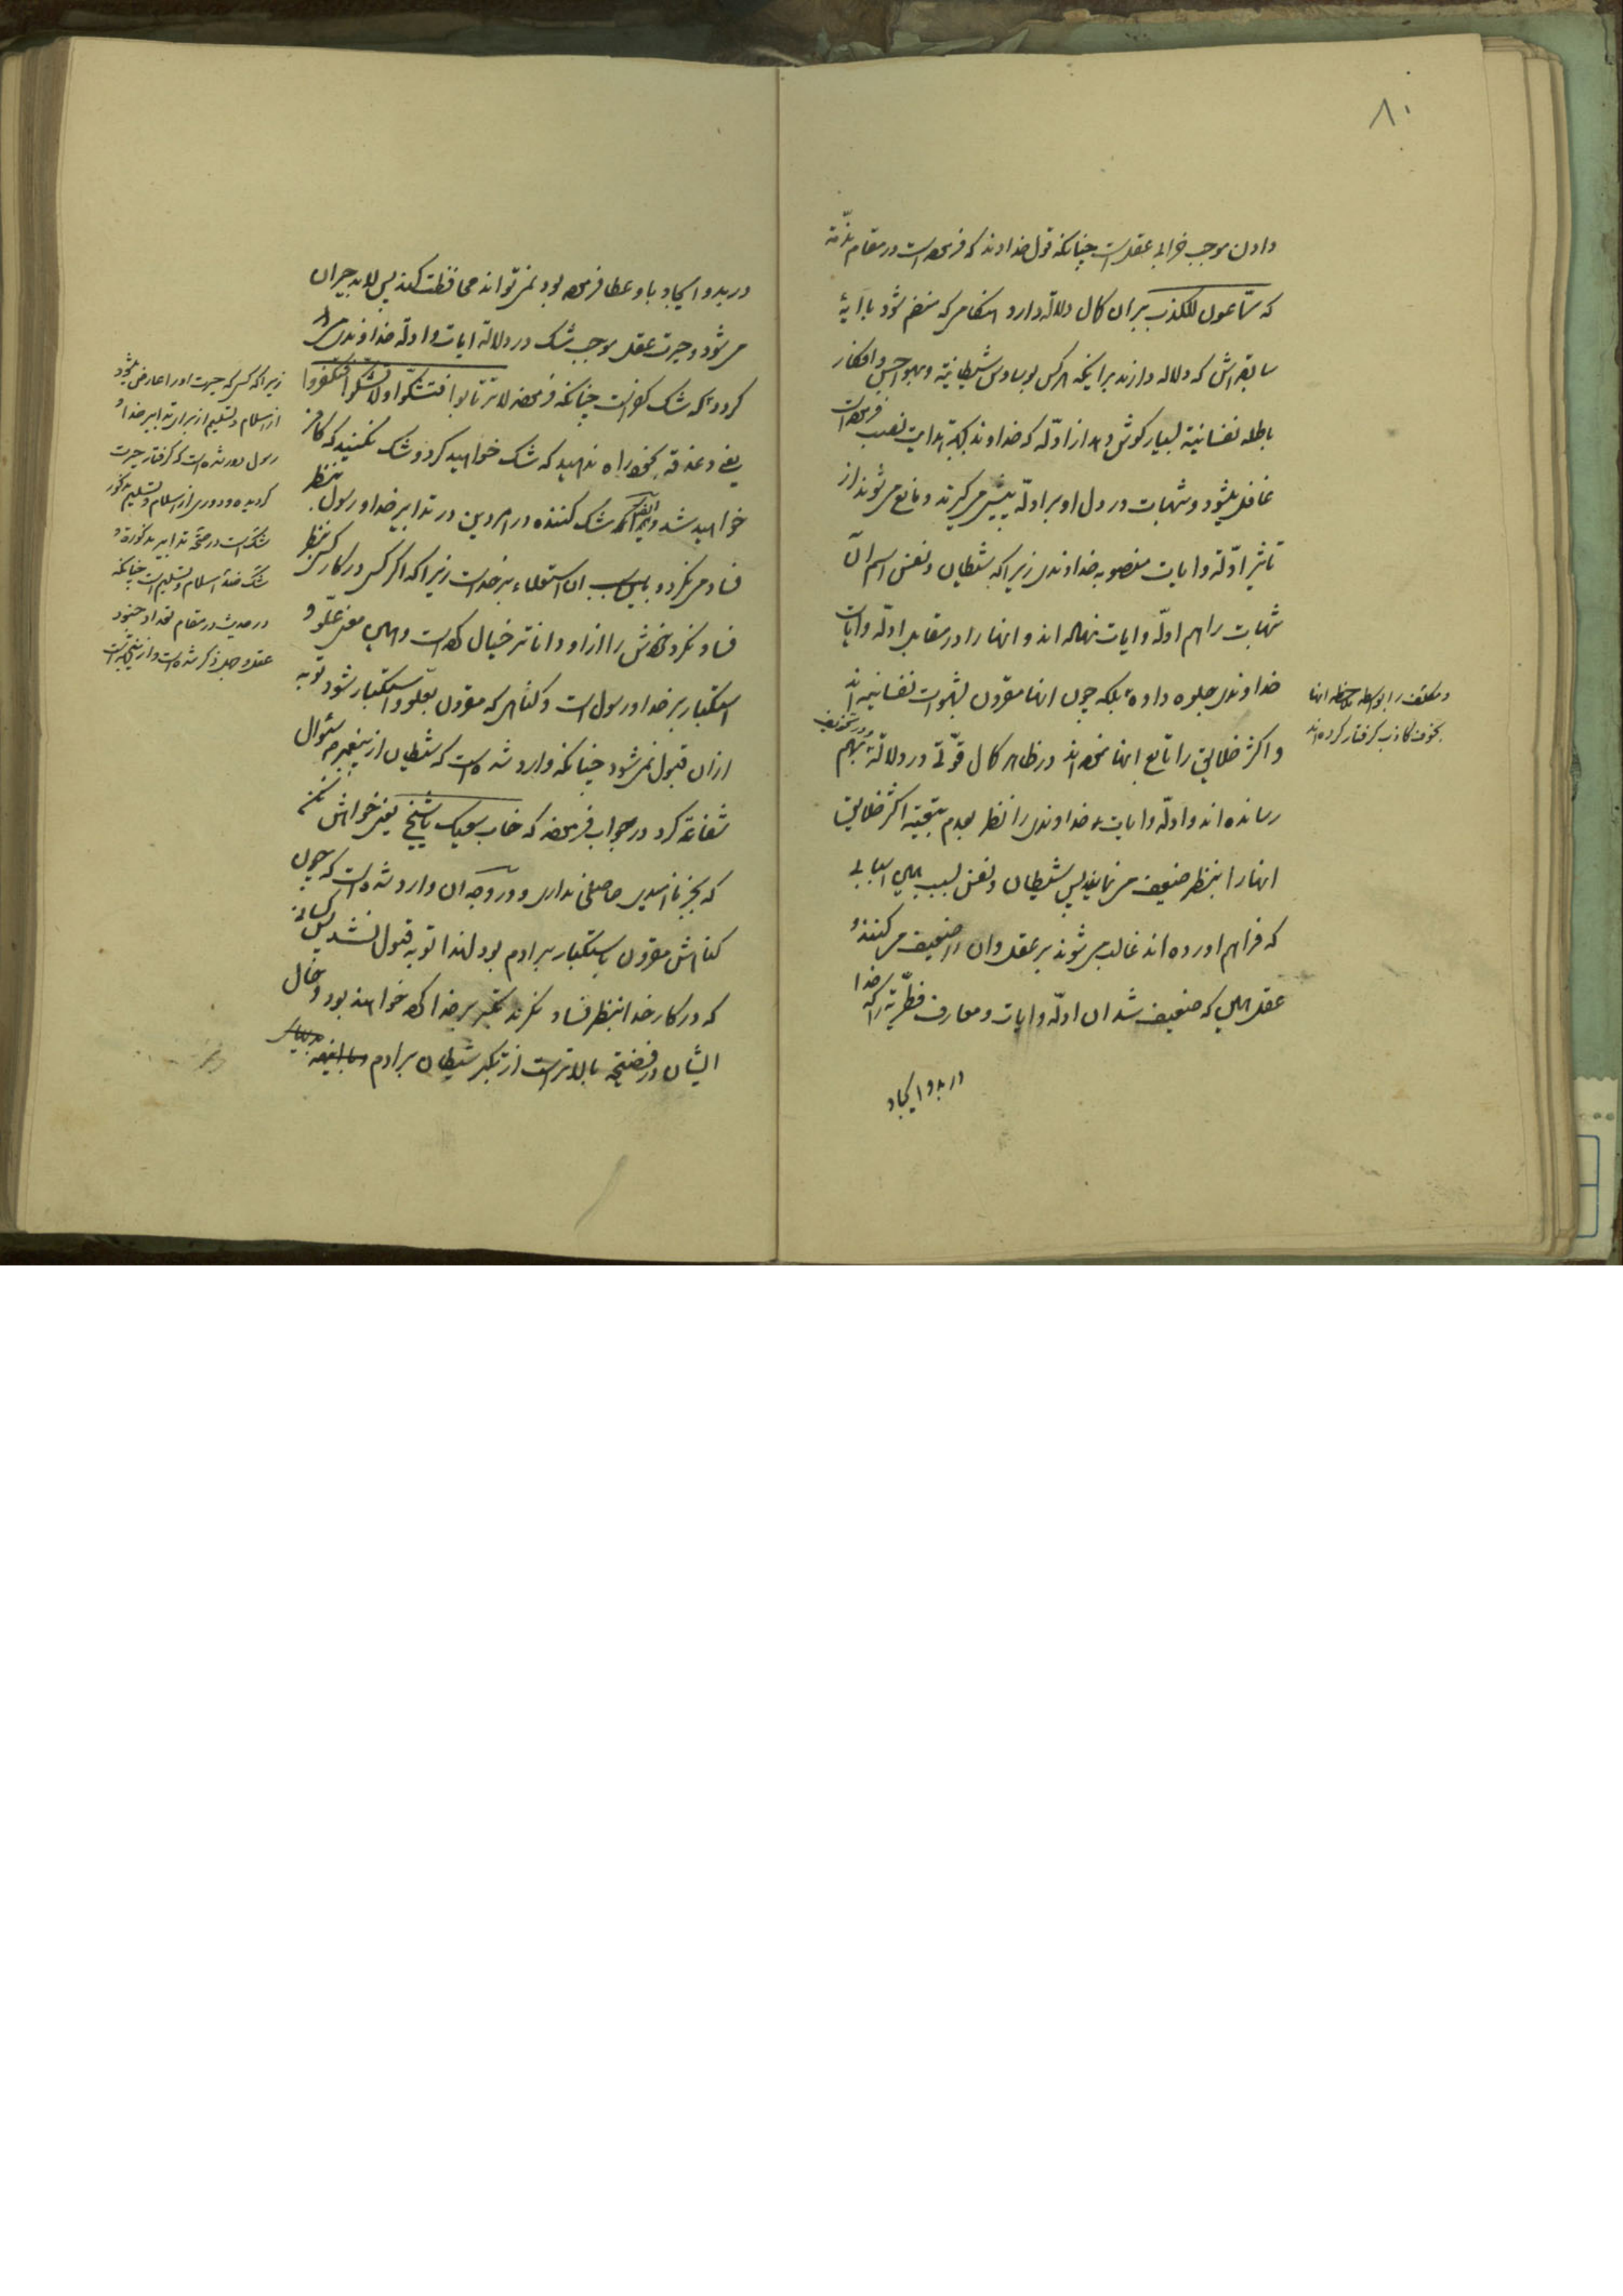 ۸۰
دادن موجب خرابی عقلست چنانکه قول خداوند که فرموده است در مقام مذمّة
که سمّاعون للکذب بر ان کمال دلالة دارد هنگامی که منضم شود با ایۀ
سابقه‌اش که دلاله دارند بر اینکه هرکس بوساوس شیطانیّة و هواجس و افکار
باطله نفسانیّة بسیار گوش دهد از ادلّه که خداوند بجهة هدایت نصب فرموده است
غافل میشود و شبهات در دل او بر ادلّه پیشی میگیرند و مانع میشوند از
تاثیر ادلّه و ایات منصوبه خداوندی زیرا که شیطان و نفس اسم ان
شبهات را هم ادلّه و ایات نهاده اند و انها را در مقابل ادلّه و ایات
خداوندی جلوه داده بلکه چون انها مقرون بشهوات نفسانیه اند
و اکثر خلایق را تابع انها نموده اند در ظاهر کمال قوّتی در دلالة بهم
و در تخویف
رسانده اند و ادلّه و ایات خداوندی را نظر بعدم تبعیّة اکثر خلایق
انها را بنظر ضعیف مینمایند پس شیطان و نفس بسبب همین اسبابی
که فراهم اورده اند غالب میشوند بر عقل و ان را ضعیف میکنند و
عقل همین که ضعیف شد ان ادلّه و ایات و معارف فطریّه را که خدا
در بدو ایجاد
و مکلف را بواسطه ملاحظه انها
بخوف کاذب گرفتار کرده اند
در بدو ایجاد باو عطا فرموده بود نمیتواند محافظت کند پس لابد حیران
میشود و حیرت عقل موجب شک در دلالة ایات و ادلّه خداوندی
گردد که شک کفر است چنانکه فرموده لا ترتابوا فتشکّوا و لا تشکّوا فتکفروا
یعنی دغدغه بخود راه ندهید که شک خواهید کرد و شک نکنید که کافر
خواهید شد و ایضا شک کننده در امر دین در تدابیر خدا و رسول بنظر
فساد مینگرد و باین سبب ان استعلاء بر خداست زیرا که اگر کسی در کار کسی بنظر
فساد نگرد خودش را از او داناتر خیال کرده است و همین معنی علوّ و
استکبار بر خدا و رسول است و گناهی که مقرون بعلو و استکبار شود توبه
از ان قبول نمیشود چنانکه وارد شده است که شیطان از پیغمبر سئوال
شفاعة کرد در جواب فرموده که خاب سعیک یا شیخ یعنی خواهش نکن
که بجز ناامیدی حاصلی نداری و در وجه ان وارد شده است که چون
گناهش مقرون باستکبار بر ادم بود لهذا توبه قبول نشد پس کسانی
که در کار خدا بنظر فساد نگرند تکبر بر خدا کرده خواهند بود و حال
ایشان در فضیحة بالاتر است از تکبر شیطان بر ادم
زیرا که کسی که حیرت او را عارض میشود
از اسلام و تسلیم از برای تدابیر خدا و
رسول دور شده است که گرفتار حیرت
گردیده و دوری از اسلام و تسلیم مذکور
شک است در صحّة تدابیر مذکوره و
شک ضدّ اسلام و تسلیم است چنانکه
در حدیث در مقام تعداد جنود
عقل و جهل ذکر شده است